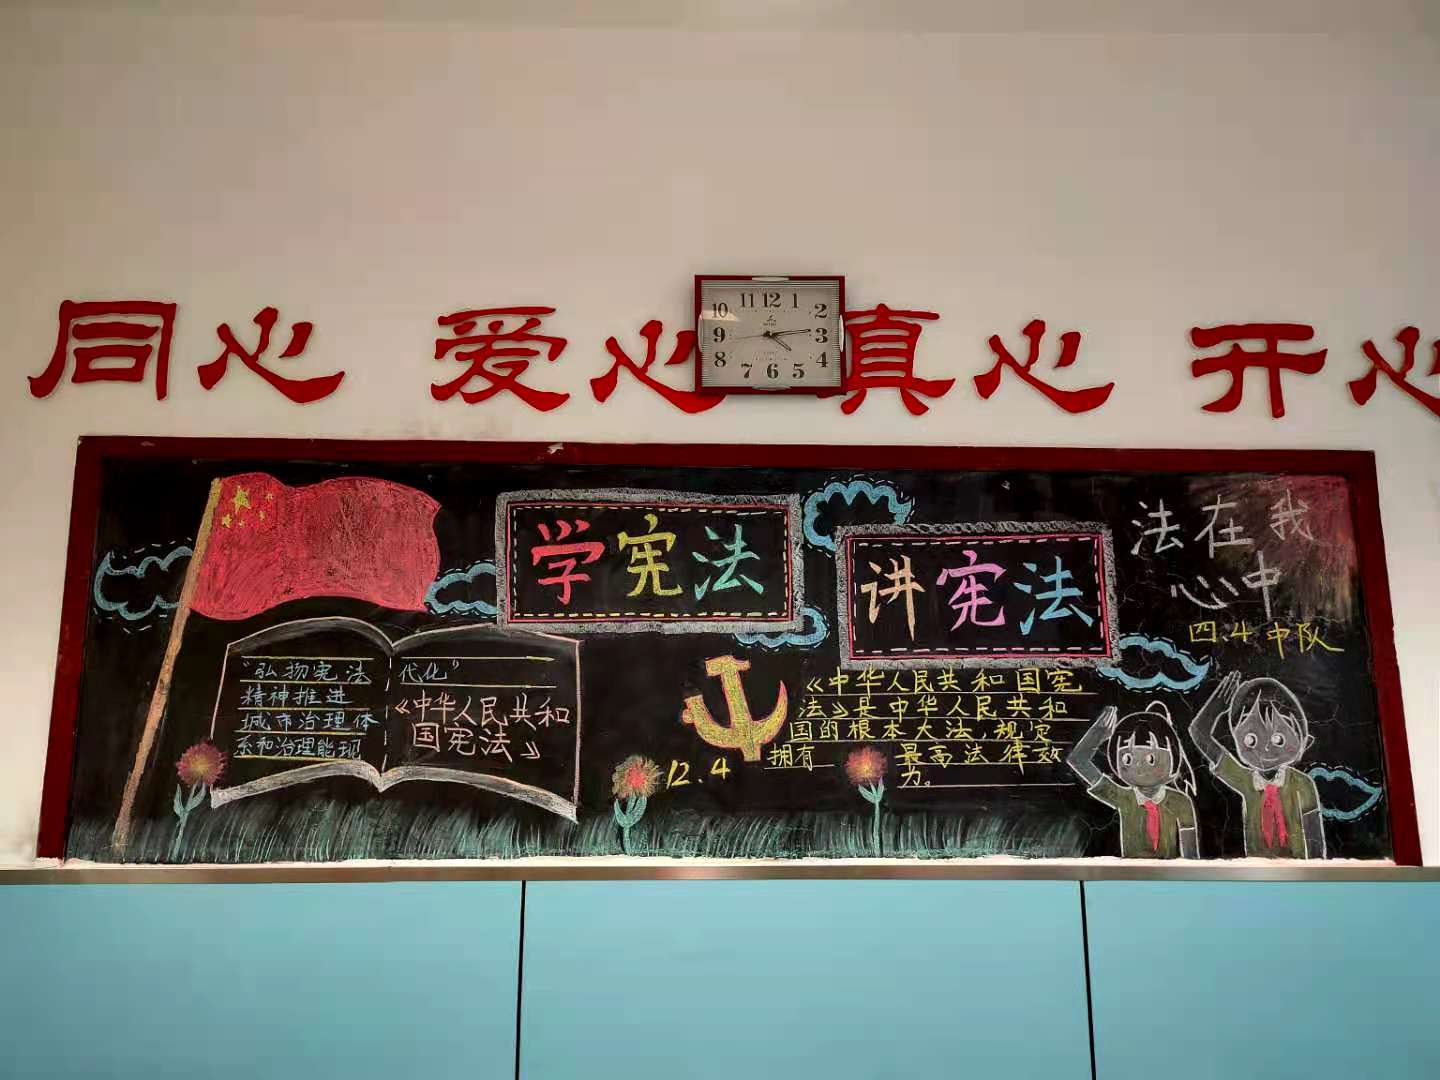 同心 爱心 真心 开心
11 12 1
10 2
9 3
8 4
7 6 5
学宪法
讲宪法
法在我
心中
四.4中队
“弘扬宪法
精神推进
城市治理体
系和治理能现
代化”
《中华人民共和
国宪法》
12.4
《中华人民共和国宪
法》是中华人民共和
国的根本大法,规定
拥有 最高法律效
力。